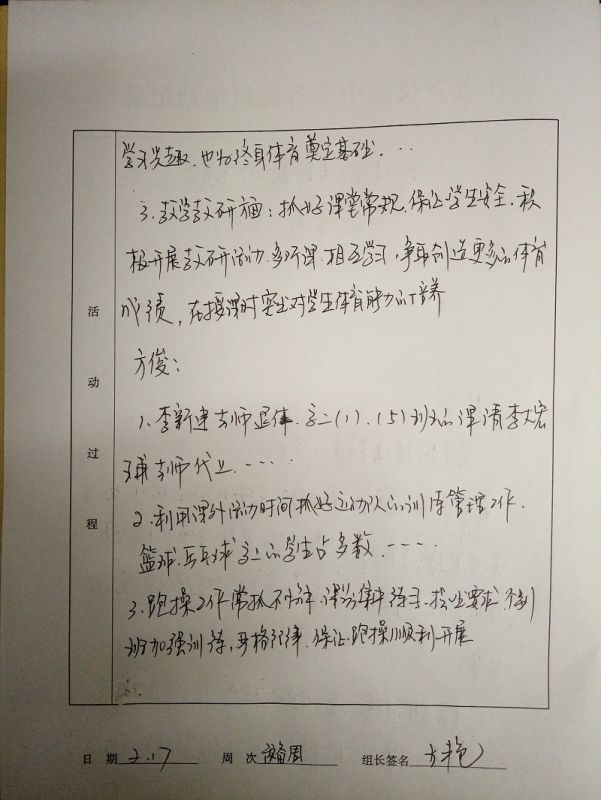 学习兴趣、也为终身体育奠定基础。…
3、教学教研方面：抓好课堂常规，保证学生安全，积
极开展教研活动，多听课，相互学习，争取创造更多的体育
成绩，在授课时突出对学生体育能力的培养
方俊：
1、李新建老师退休，高二（1）、（5）班的课请李大宏
老师代上、……
2、利用课外活动时间抓好运动队的训练管理工作，
篮球、乒乓球高二的学生占多数、……
3、跑操工作常抓不懈，课集中练习，提出要求，个别
班加强训练，严格纪律，保证跑操顺利开展
活动过程
日 期 2.17 周 次 预备周 组长签名